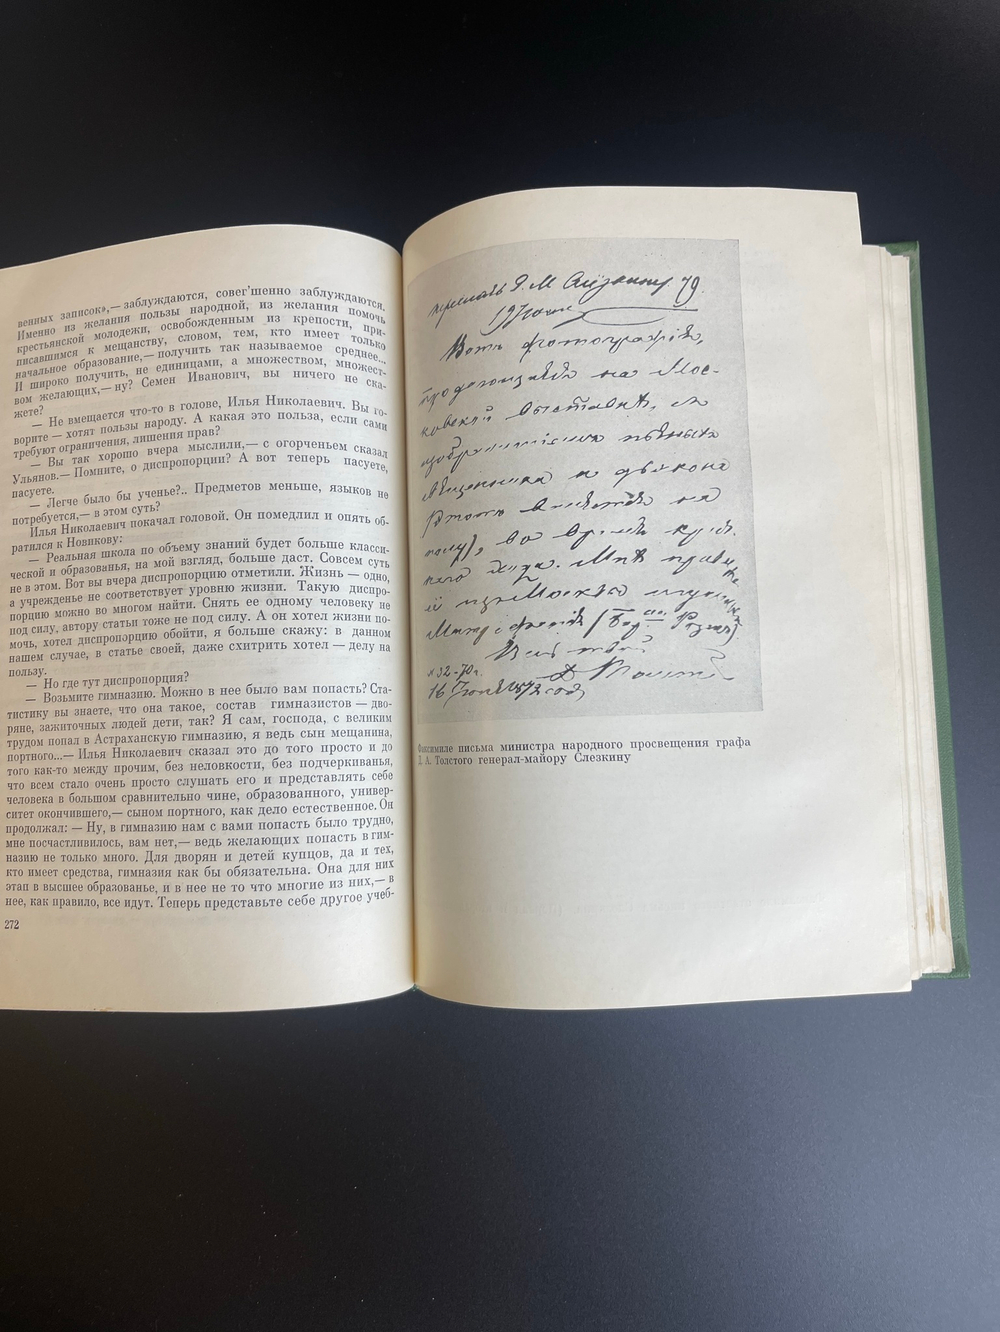 венных записок»,— заблуждаются, совег'шенно заблуждаются.
Именно из желания пользы народной, из желания помочь
крестьянской молодежи, освобожденным из крепости, при-
писавшимся к мещанству, словом, тем, кто имеет только
начальное образование,— получить так называемое среднее...
И широко получить, не единицами, а множеством, множест-
вом желающих,— ну? Семен Иванович, вы ничего не ска-
жете?
— Не вмещается что-то в голове, Илья Николаевич. Вы го-
ворите — хотят пользы народу. А какая это польза, если сами
требуют ограничения, лишения прав?
— Вы так хорошо вчера мыслили,— с огорченьем сказал
Ульянов.— Помните, о диспропорции? А вот теперь пасуете,
пасуете.
— Легче было бы ученье?.. Предметов меньше, языков не
потребуется,— в этом суть?
Илья Николаевич покачал головой. Он помедлил и опять об-
ратился к Новикову:
— Реальная школа по объему знаний будет больше класси-
ческой и образованья, на мой взгляд, больше даст. Совсем суть
не в этом. Вот вы вчера диспропорцию отметили. Жизнь — одно,
а учрежденье не соответствует уровню жизни. Такую диспро-
порцию можно во многом найти. Снять ее одному человеку не
под силу, автору статьи тоже не под силу. А он хотел жизни по-
мочь, хотел диспропорцию обойти, я больше скажу: в данном
нашем случае, в статье своей, даже схитрить хотел — делу на
пользу.
— Но где тут диспропорция?
— Возьмите гимназию. Можно в нее было вам попасть? Ста-
тистику вы знаете, что она такое, состав гимназистов — дво-
ряне, зажиточных людей дети, так? Я сам, господа, с великим
трудом попал в Астраханскую гимназию, я ведь сын мещанина,
портного...— Илья Николаевич сказал это до того просто и до
того как-то между прочим, без неловкости, без подчеркиванья,
что всем стало очень просто слушать его и представлять себе
человека в большом сравнительно чине, образованного, универ-
ситет окончившего,— сыном портного, как дело естественное. Он
продолжал: — Ну, в гимназию нам с вами попасть было трудно,
мне посчастливилось, вам нет,— ведь желающих попасть в гим-
назию не только много. Для дворян и детей купцов, да и тех,
кто имеет средства, гимназия как бы обязательна. Она для них
этап в высшее образованье, и в нее не то что многие из них,— в
нее, как правило, все идут. Теперь представьте себе другое учеб-
272
Г. М. Слёзкину
Вотъ фотографія,
продающаяся на Мос-
ковской выставкѣ, съ
изображеніемъ пьяныхъ
священника и дьякона
во время
хода. Мнѣ
ее изъ Москвы
Весь твой
Д. Толстой
16 Іюня 1872 года
Факсимиле письма министра народного просвещения графа
Д. А. Толстого генерал-майору Слезкину